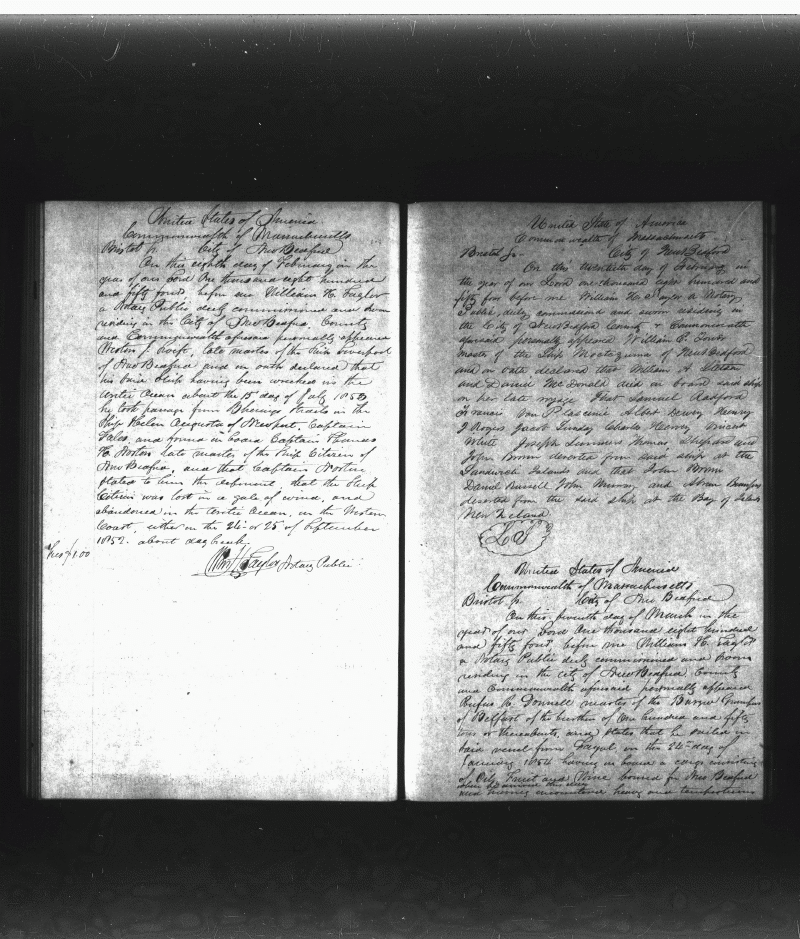 United States of America
Commonwealth of Massachusetts
Bristol Ss. City of New Bedford
On this eighth day of February in the
year of our Lord One thousand eight hundred
and fifty four before me William H. Taylor
a Notary Public duly commissioned and sworn
residing in the City of New Bedford, County
and Commonwealth aforesaid personally appeared
late master of the Ship Liverpool
of New Bedford and on oath declared that
his said Ship having been wrecked in the
Arctic Ocean about the 15 day of July 1853
he took passage from Bherings Straits in the
Ship Helen Augusta of Newport, Captain
Fales, and found on board Captain
H. Norton late master of the Ship Citizen of
New Bedford, and that Captain Norton
stated to him the deponent, that the Ship
Citizen was lost in a gale of wind, and
abandoned in the Arctic Ocean, on the Western
Coast, either on the 24 or 25 of September
1852. about day break
Fees $1.00
Wm H Taylor Notary Public
United State of America
Commonwealth of Massachusetts
Bristol Ss City of New Bedford
On this day of February in
the year of our Lord one thousand eight hundred and
fifty four before me William H. Taylor a Notary
Public, duly commissioned and sworn residing in
the City of New Bedford County & Commonwealth
aforesaid personally appeared William P.
Master of the Ship Moctezuma of New Bedford
and on oath declared that William A.
and Daniel McDonald died on board said ship
on her late voyage that Samuel
Francis Albert Henry Henry
J Rogers Jacob Charles Henry Vincent
White Joseph Thomas and
John Brown deserted from said ship at the
Sandwich Islands and that John Brown
Daniel Russell John Murray and
deserted from the said ship at the Bay of Islands
New Zealand
L S
United States of America
Commonwealth of Massachusetts
Bristol Ss. City of New Bedford
On this seventh day of March in the
year of our Lord One thousand eight hundred
and fifty four before me William H. Taylor
a Notary Public duly commissioned and sworn
residing in the City of New Bedford County
and Commonwealth aforesaid personally appeared
Rufus master of the Barque
of Belfast of the burthen of One hundred and fifty
tons or thereabouts, and states that he sailed in
said vessel from Fayal, on the 24th day of
January 1854 having on board a cargo consisting
of Oil, Fruit and Wine bound for New Bedford
and having encountered heavy and tempestuous